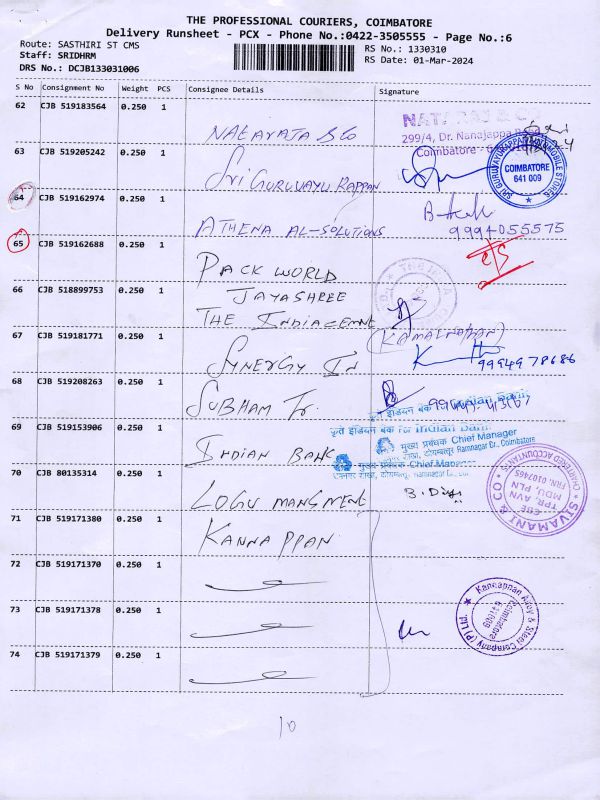 THE PROFESSIONAL COURIERS, COIMBATORE
Delivery Runsheet - PCX - Phone No.:0422-3505555 - Page No.:6
Route: SASTHIRI ST CMS
Staff: SRIDHRM
DRS No.: DCJB133031006
RS No.: 1330310
RS Date: 01-Mar-2024
S No Consignment No Weight PCS Consignee Details Signature
62 CJB 519183564 0.250 1
NATARAJA & Co
NATARAJ & C
299/4, Dr. Nanjappa
Coimbatore
63 CJB 519205242 0.250 1
Sri GURUVAYU RAPPAN
COIMBATORE
641 009
64 CJB 519162974 0.250 1
ATHENA AL-SOLUTIONS
9994055575
65 CJB 519162688 0.250 1
PACK WORLD
JAYASHREE
66 CJB 518899753 0.250 1
THE INDIACEMNE
67 CJB 519181771 0.250 1
SYNERGY IN
9994978686
68 CJB 519208263 0.250 1
SUBHAM Tr.
69 CJB 519153906 0.250 1
INDIAN BANK
कृते इंडियन बैंक For Indian Bank
मुख्य प्रबंधक Chief Manager
Ramnagar Br., Coimbatore
मुख्य प्रबंधक Chief Manager
70 CJB 80135314 0.250 1
LOGU MANGMENE
SIVAMANI & CO
CHARTERED ACCOUNTANTS
FRN 0107465
MDU, PLN
TPR, AVN
EBE
71 CJB 519171380 0.250 1
KANNAPPAN
72 CJB 519171370 0.250 1
73 CJB 519171378 0.250 1
Kannappan Alloy & Steel Company (P) Ltd
Coimbatore
641009
74 CJB 519171379 0.250 1
10